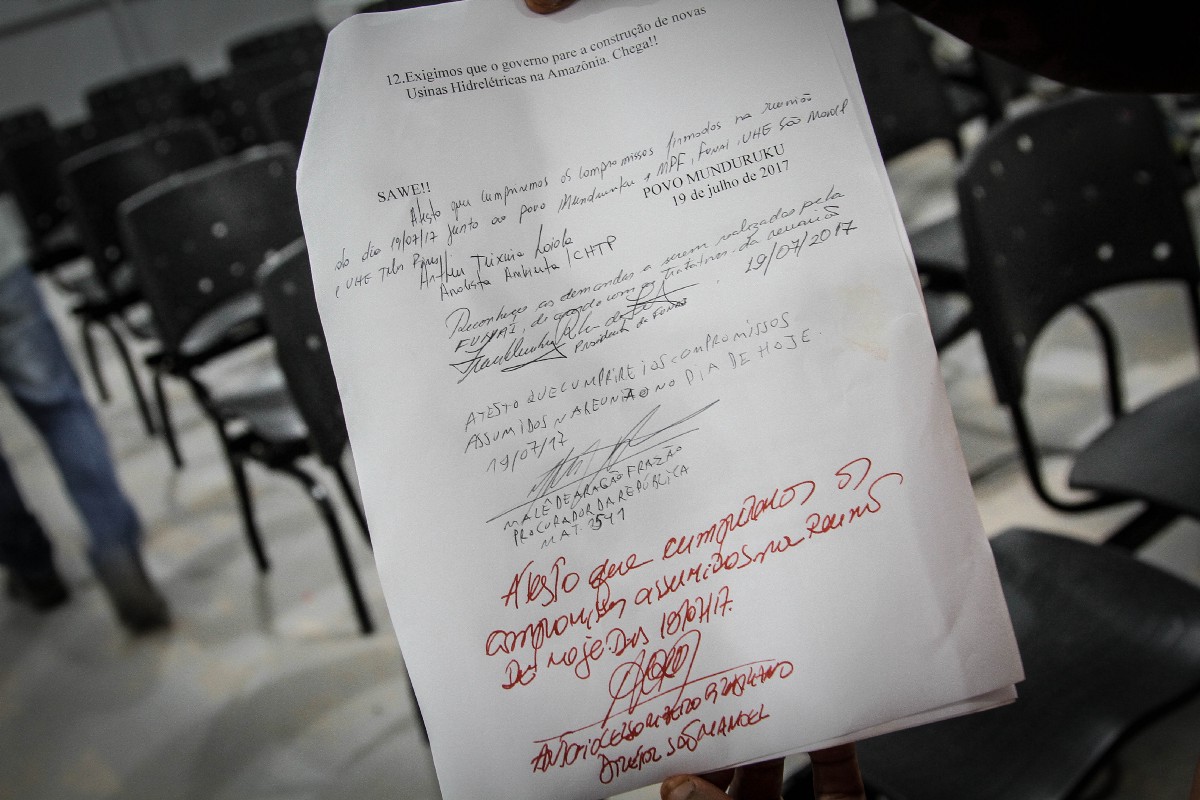 12.Exigimos que o governo pare a construção de novas
Usinas Hidrelétricas na Amazônia. Chega!!
SAWE!!
Atesto que cumpriremos os compromissos firmados na reunião
do dia 19/07/17 junto ao povo Munduruku, MPF, Funai, UHE São Manoel
e UHE Teles Pires
POVO MUNDURUKU
19 de julho de 2017
Arthur Teixeira Loiola
Analista Ambiental/CHTP
Reconheço as demandas a serem realizadas pela
FUNAI, de acordo com as tratativas da reunião
19/07/2017
Presidente da Funai
ATESTO QUE CUMPRIREI OS COMPROMISSOS
ASSUMIDOS NA REUNIÃO NO DIA DE HOJE.
19/07/17
MALÊ DE ARAGÃO FRAZÃO
PROCURADOR DA REPÚBLICA
MAT. 1541
Atesto que cumpriremos os
compromissos assumidos na Reunião
De hoje. Dia 19/07/17.
Diretor São Manoel